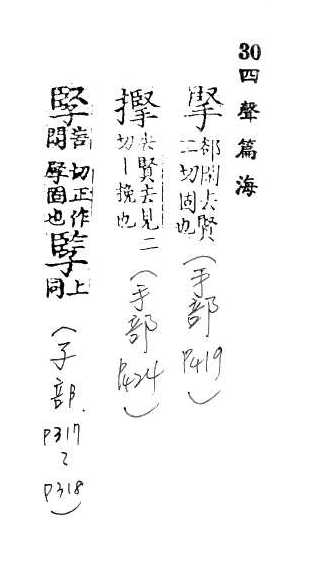 30四聲篇海
掔閑去賢二切固也(手部P419)
去賢去見二切丨挽也(手部P424)
孯苦閑切正作掔固也上同(子部.P317~P318)